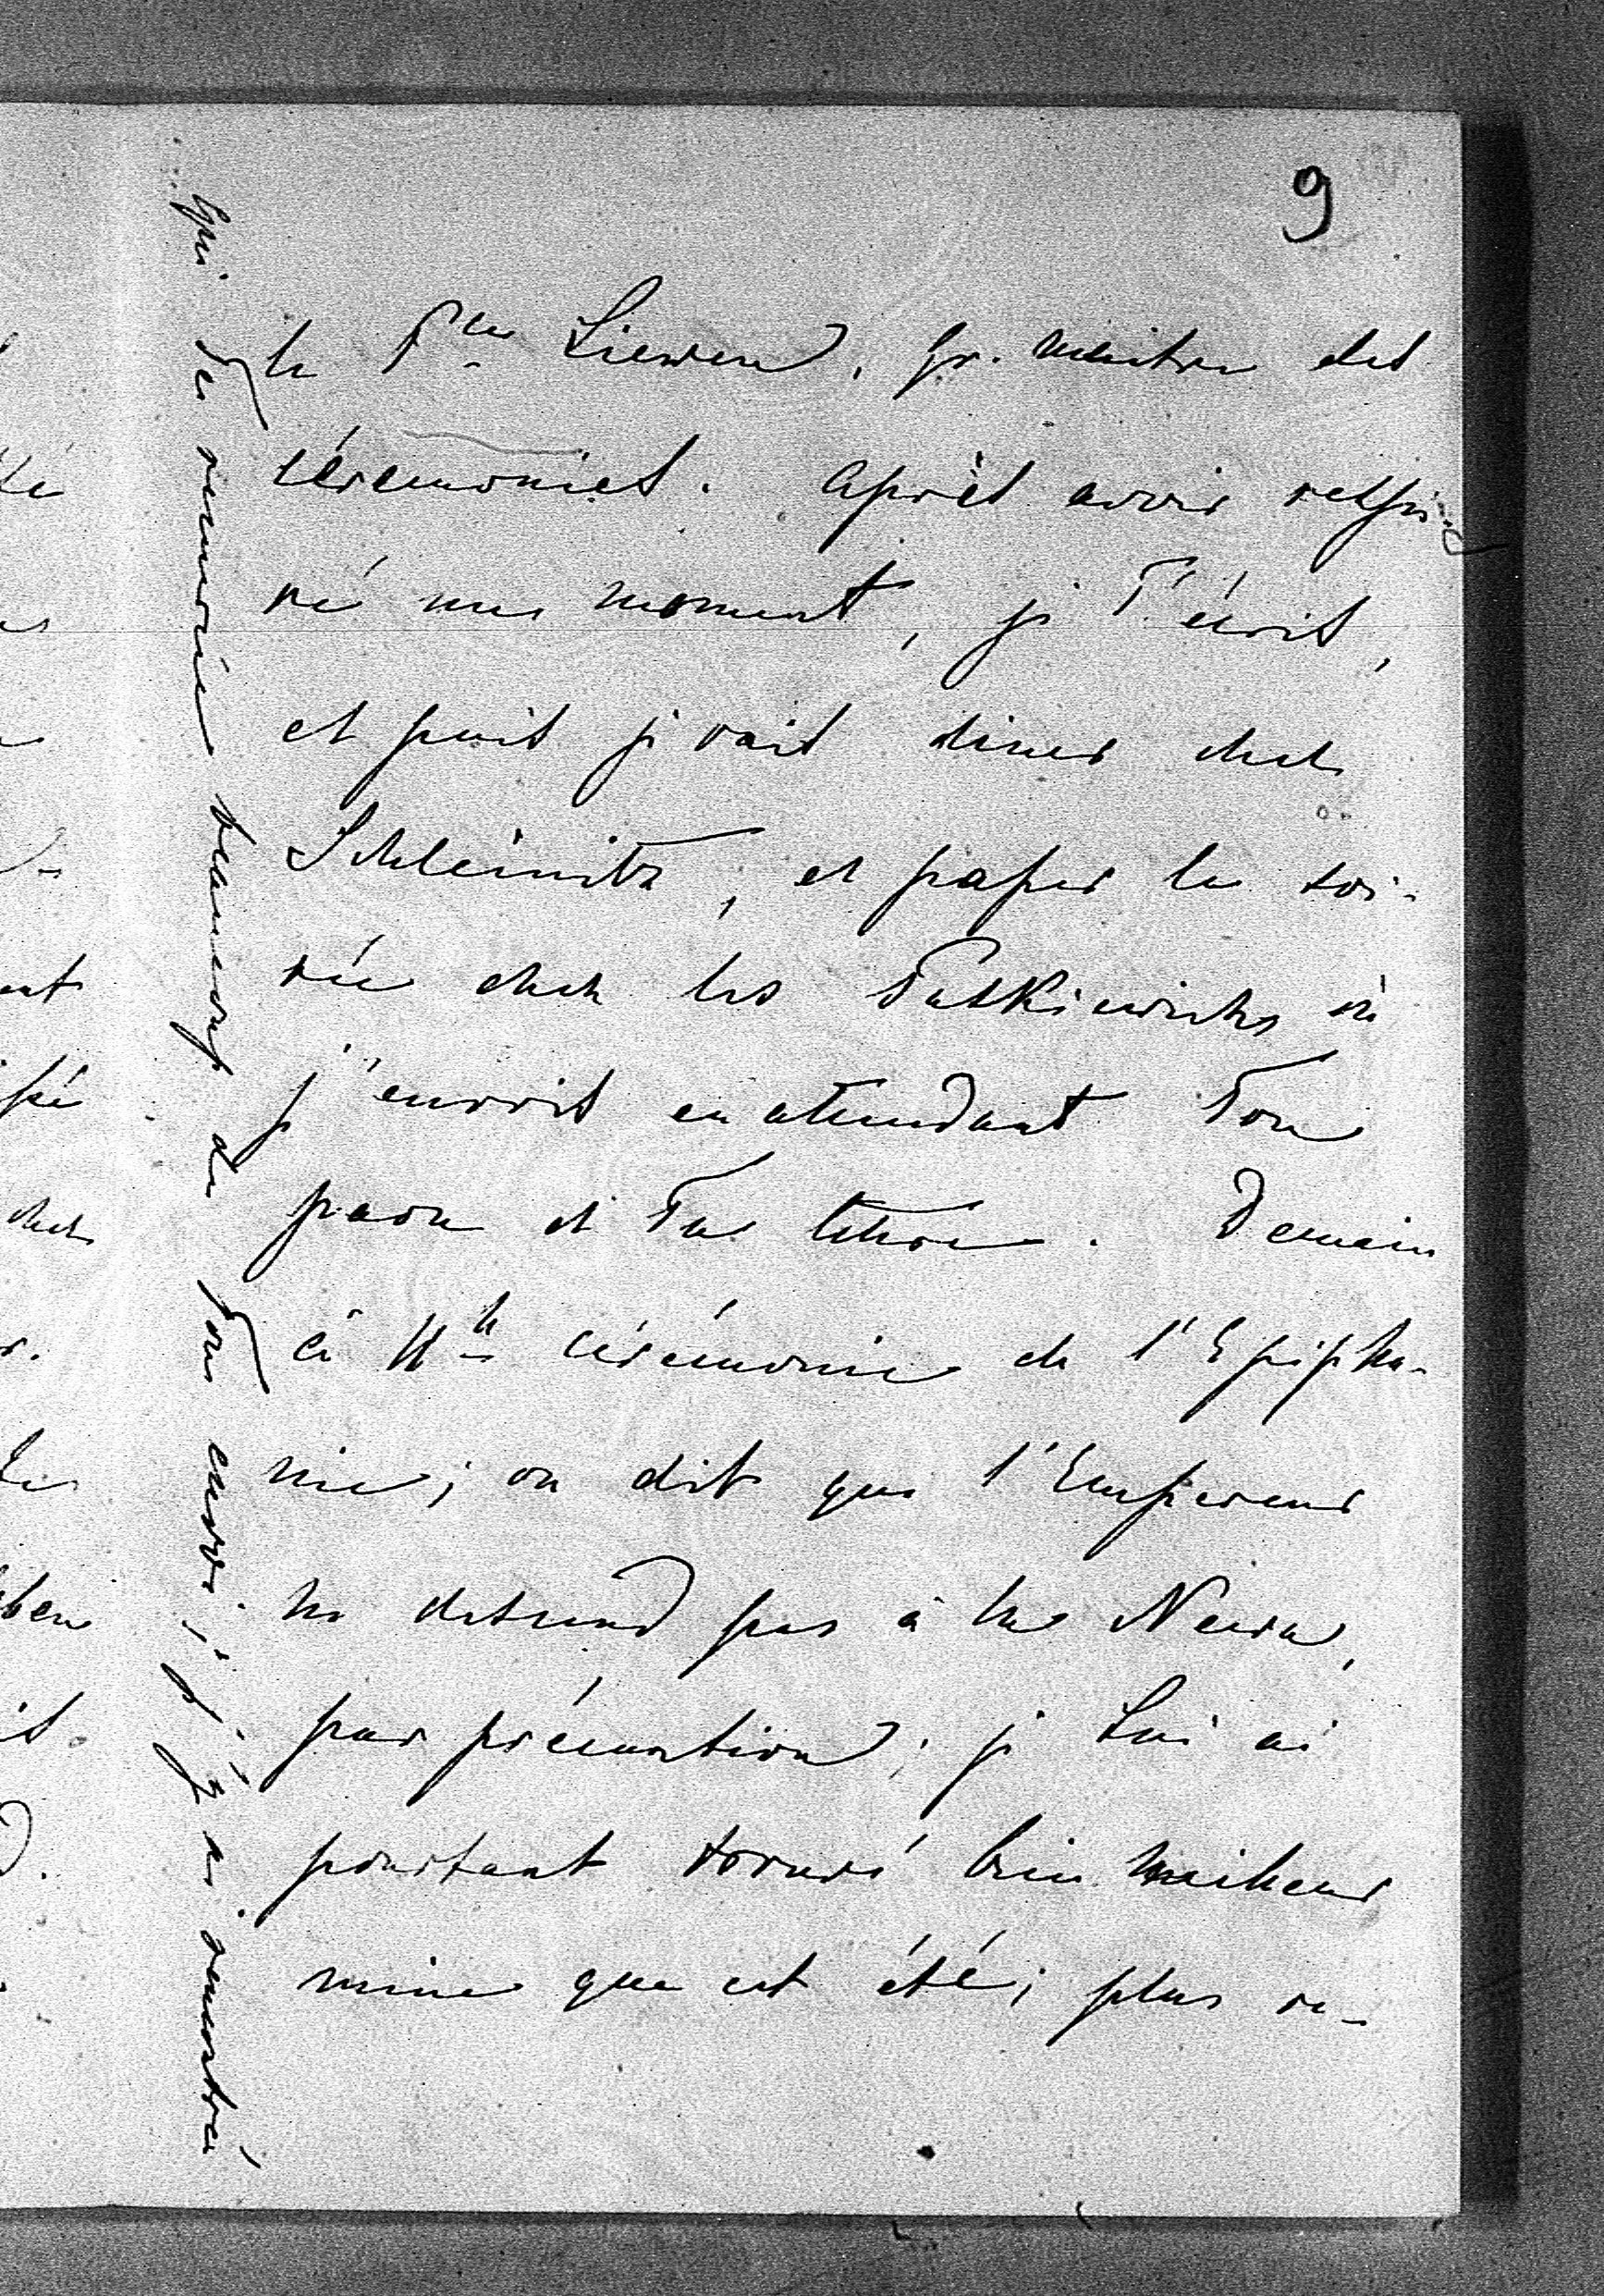 9
le Pce Liewen, gr. maitre des
cérémonies. Après avoir respi-
ré un moment, je T'écris,
et puis je vais diner chez
Schleinitz, et passer la soi-
rée chez les Paskiewichs où
j'envois en attendant Ton
paon et Ta lettre. Demain
à 11h cérémonie de l'Epipha-
nie; on dit que l'Empereur
ne descend pas à la Newa,
par précaution; je Lui ai
pourtant trouvé bien meilleur
mine que cet été; plus re-
qui Te remercie beaucoup de Ton envoi; j'y ai rencontré